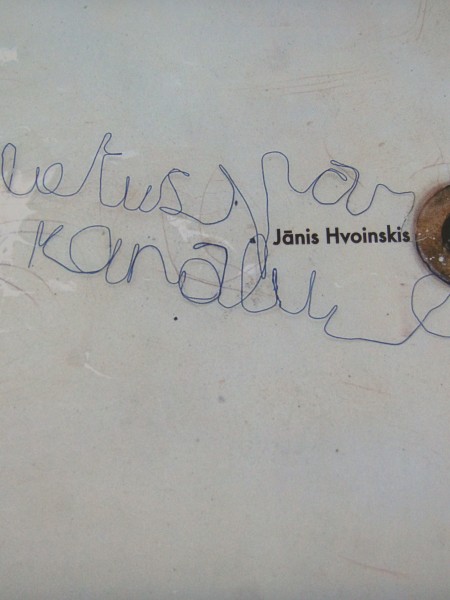 lietus pār
Jānis Hvoinskis
kanālu_